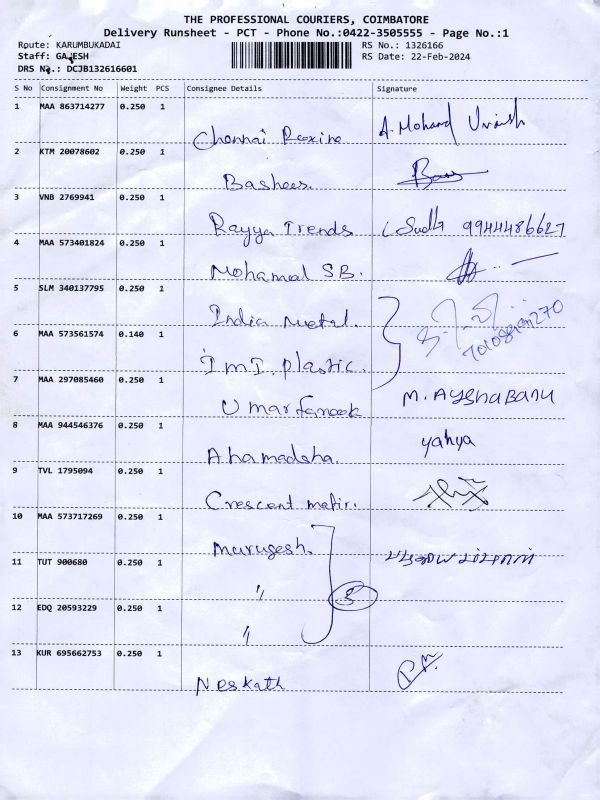 THE PROFESSIONAL COURIERS, COIMBATORE
Delivery Runsheet - PCT - Phone No.:0422-3505555 - Page No.:1
Route: KARUMBUKADAI RS No.: 1326166
Staff: GAJESH RS Date: 22-Feb-2024
DRS No.: DCJB132616601
S No Consignment No Weight PCS Consignee Details Signature
1 MAA 863714277 0.250 1
Chennai Rexine A. Mohamd
2 KTM 20078602 0.250 1
Bashees.
3 VNB 2769941 0.250 1
Rayya Trends Sudh 9944486627
4 MAA 573401824 0.250 1
Mohamad SB.
5 SLM 340137795 0.250 1
India metal.
6 MAA 573561574 0.140 1
I m I. plastic.
7 MAA 297085460 0.250 1
Umarfarook M. AYSHABANU
8 MAA 944546376 0.250 1
Ahamadsha. yahya
9 TVL 1795094 0.250 1
Crescent matir.
10 MAA 573717269 0.250 1
Murugesh.
11 TUT 900680 0.250 1
"
3
12 EDQ 20593229 0.250 1
"
13 KUR 695662753 0.250 1
Neskath